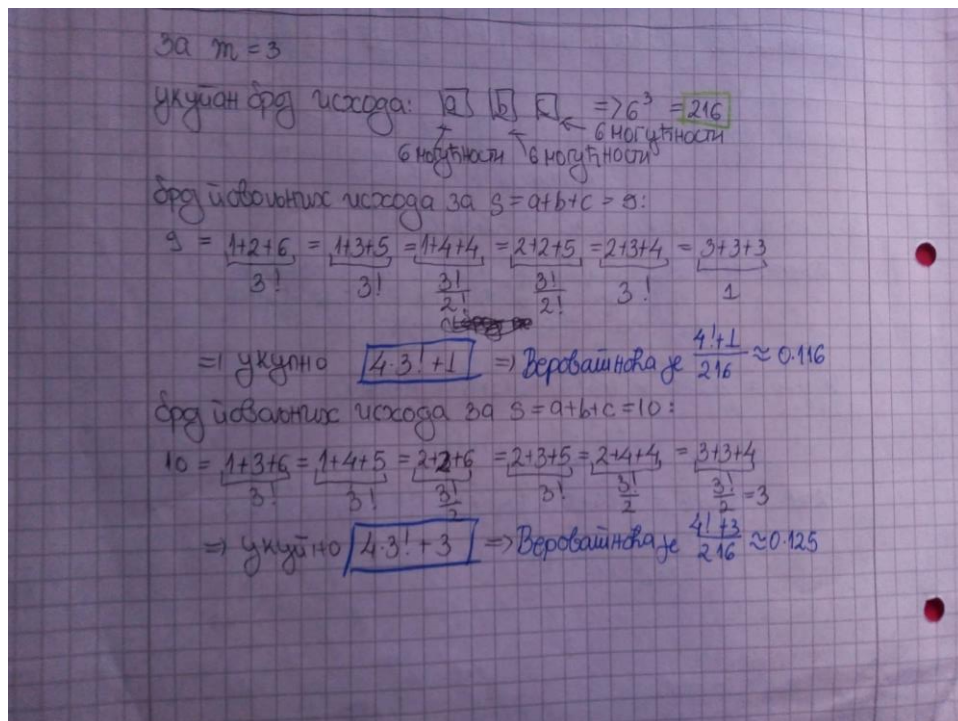 за m = 3
укупан број исхода: a b c => 6³ = 216
6 могућности 6 могућности 6 могућности
број повољних исхода за s = a+b+c = 9:
9 = 1+2+6 = 1+3+5 = 1+4+4 = 2+2+5 = 2+3+4 = 3+3+3
3! 3! 3!/2! 3!/2! 3! 1
=> укупно 4·3!+1 => Вероватноћа је 4!+1/216 ≈ 0.116
број повољних исхода за s = a+b+c = 10:
10 = 1+3+6 = 1+4+5 = 2+2+6 = 2+3+5 = 2+4+4 = 3+3+4
3! 3! 3!/2 3! 3!/2 3!/2 = 3
=> укупно 4·3!+3 => Вероватноћа је 4!+3/216 ≈ 0.125